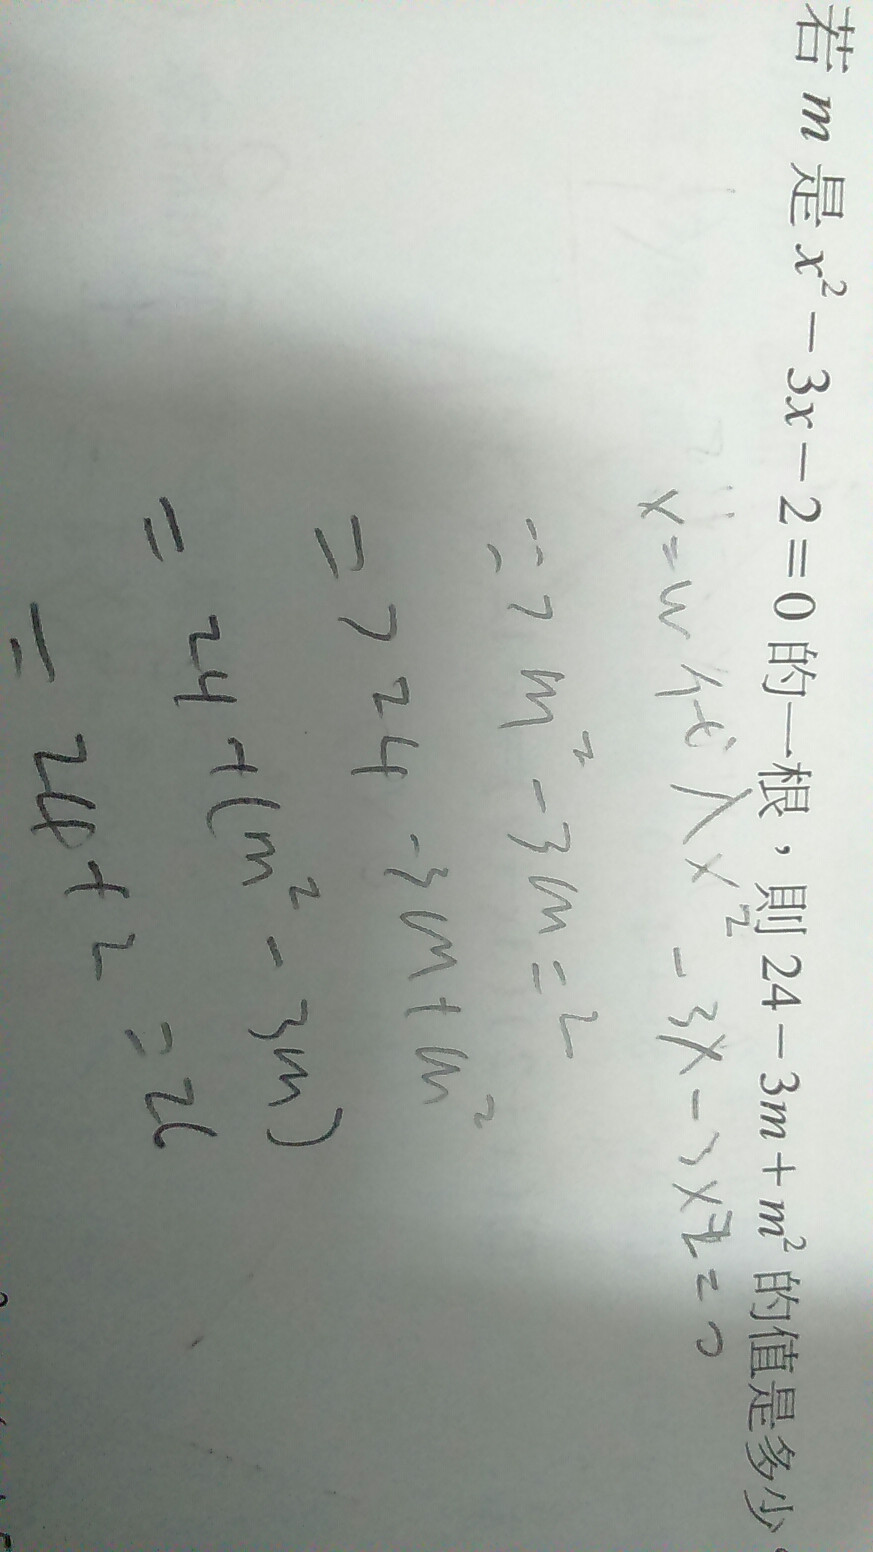 若 m 是 x² − 3x − 2 = 0 的一根，則 24 − 3m + m² 的值是多少
x = m 代入 x² - 3x - 2 = 0
=> m² - 3m = 2
=> 24 - 3m + m²
= 24 + (m² - 3m)
= 24 + 2 = 26